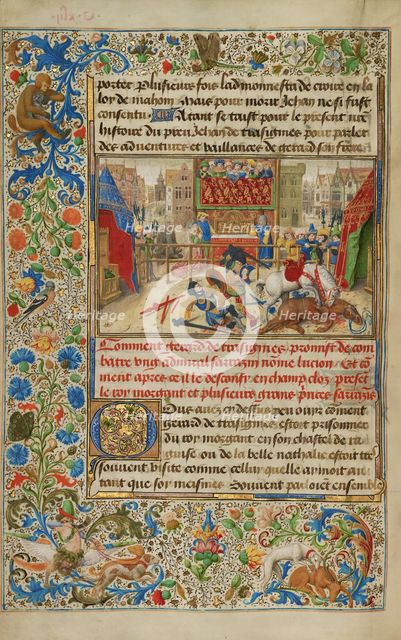 porter plusieurs fois ladmonnesta de croire en la
loy de mahon Mais pour morir Jehan ne si fust
consentu Atant se taist pour le present nre
histoire du preu Jehan de trasignies pour parler
des adventures et vaillances de gerard son frere
Heritage
Images
Comment gerard de trasignies promist de com
batre ung admiral sarrazin nomme lucion Et co
ment apres ce il le desconfi en champ clos present
le roy morgant et plusieurs grans princes sarrazis
Vous avez ouy desus peu ou comment
Gerard de trasignies estoit prisonnier
du roy morgant en son chastel de
et que de la belle nathalie estoit tres
souvent visite comme cellui quelle aimoit au
tant que soy meismes Souvent parloient ensemble